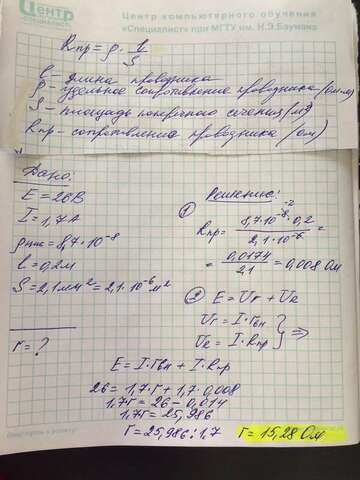 Центр
Специалист
Центр компьютерного обучения
«Специалист» при МГТУ им. Н.Э.Баумана
Rпр = ρ · l/S
l - длина проводника
ρ - удельное сопротивление проводника (ом·м)
S - площадь поперечного сечения (м²)
Rпр - сопротивление проводника (ом)
Дано:
E = 26В
I = 1,7А
ρ = 8,7·10⁻⁸
l = 0,2м
S = 2,1мм² = 2,1·10⁻⁶м²
r = ?
Решение:
1
Rпр = 8,7·10⁻⁸·0,2 / 2,1·10⁻⁶ =
= 0,0174 / 2,1 = 0,008 Ом
2 E = Ur + Ue
Ur = I·rвн
Ue = I·Rпр } ⇒
E = I·rвн + I·Rпр
26 = 1,7·r + 1,7·0,008
1,7r = 26 - 0,014
1,7r = 25,986
r = 25,986:1,7 r = 15,28 Ом